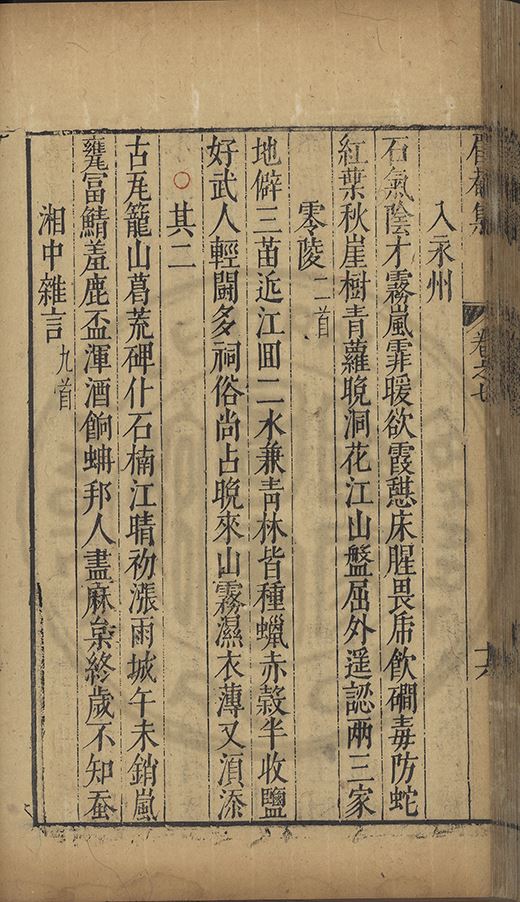 集
卷之七
入永州
石氣陰才霧嵐霏暖欲霞憇床腥畏虎飲磵毒防蛇
紅葉秋崖樹青蘿晚洞花江山盤屈外遥認兩三家
零陵二首
地僻三苗近江囬二水兼青林皆種蠟赤榖半收鹽
好武人輕鬪多祠俗尚占晚來山霧濕衣薄又湏添
其二
古瓦籠山葛荒碑仆石楠江晴初漲雨城午未銷嵐
甕富鯖羞鹿盃渾酒餉蚺邦人盡麻枲終歲不知蚕
湘中雜言九首